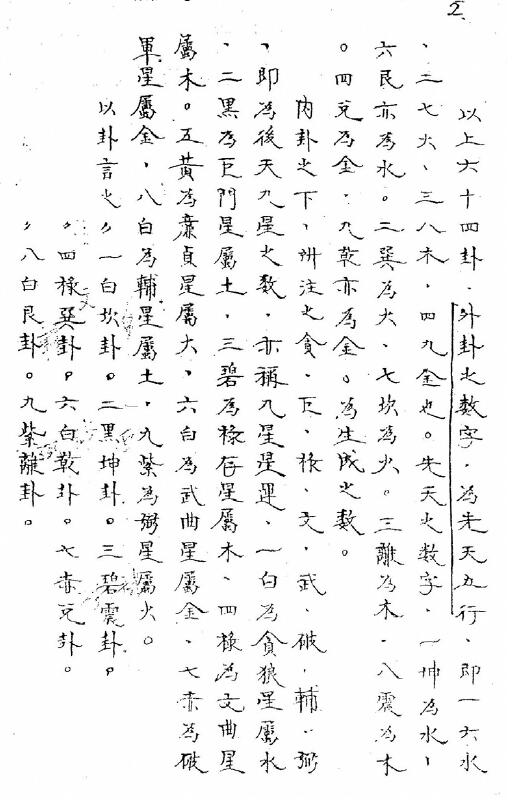 2
以上六十四卦、外卦之数字,為先天五行、即一六水
、二七火、三八木,四九金也。先天之数字、一坤為水、
六艮亦為水。二巽為火、七坎為火。三離為木、八震為木
。四兌為金、九乾亦為金。為生成之数。
内卦之下、附注之貪、巨、祿、文、武、破、輔、弼
、即為後天九星之数、亦稱九星星運、一白為貪狼星屬水
、二黑為巨門星屬土、三碧為祿存星屬木、四祿為文曲星
屬木。五黃為廉貞星屬火、六白為武曲星屬金、七赤為破
軍星屬金,八白為輔星屬土,九紫為弼星屬火。
以卦言之々一白坎卦。二黑坤卦。三碧震卦。
々四祿巽卦。六白乾卦。七赤兌卦。
々八白艮卦。九紫離卦。